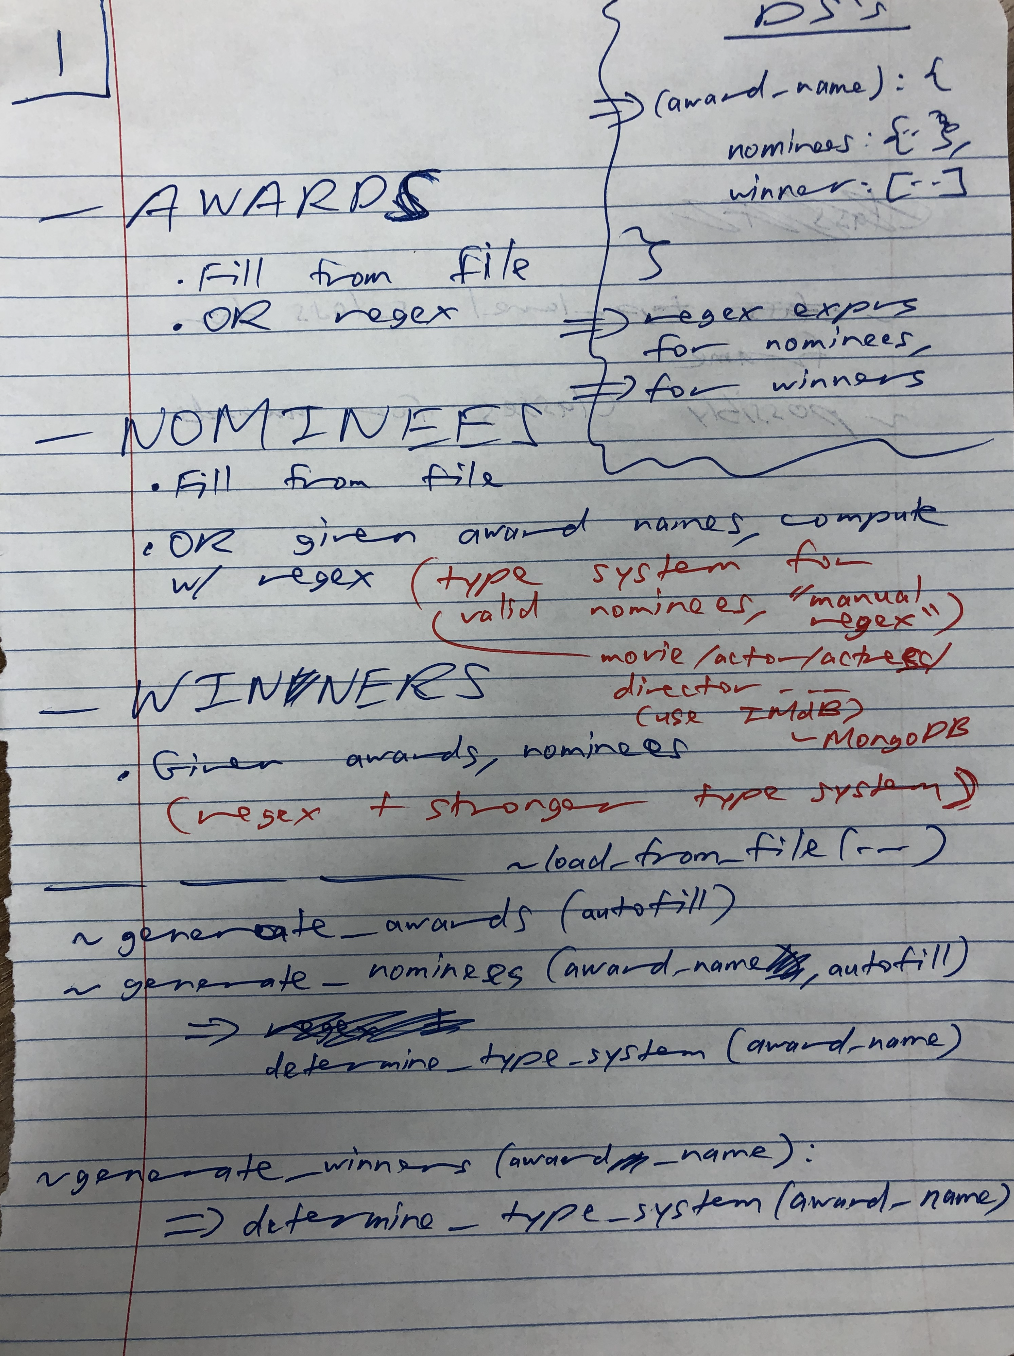 1
DS's
=> (award_name): {
nominees: {--},
winner: [--]
}
=> regex exprs
for nominees,
=> for winners
— AWARDS
. Fill from file
. OR regex
— NOMINEES
. Fill from file
. OR given award names, compute
w/ regex (type system for
valid nominees, "manual
regex")
movie/actor/actress/
director - --
(use IMdB)
- MongoDB
— WINNERS
. Given awards, nominees
(regex + stronger type system)
~load_from_file(---)
~ generate_awards (autofill)
~ generate_nominees (award_name, autofill)
=>
determine_type_system (award_name)
~generate_winners (award_name):
=> determine_type_system (award_name)